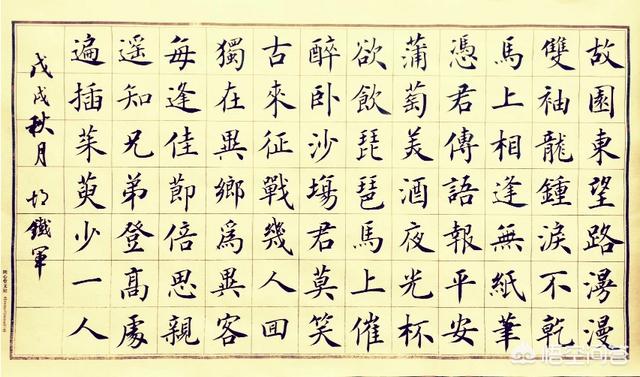 故園東望路漫漫
雙袖龍鍾淚不乾
馬上相逢無紙筆
憑君傳語報平安
蒲萄美酒夜光杯
欲飲琵琶馬上催
醉卧沙塲君莫笑
古來征戰幾人囬
獨在異鄉爲異客
每逢佳節倍思親
遥知兄弟登高處
遍插茱萸少一人
戊戌秋月 胡鐵軍
悟空问答